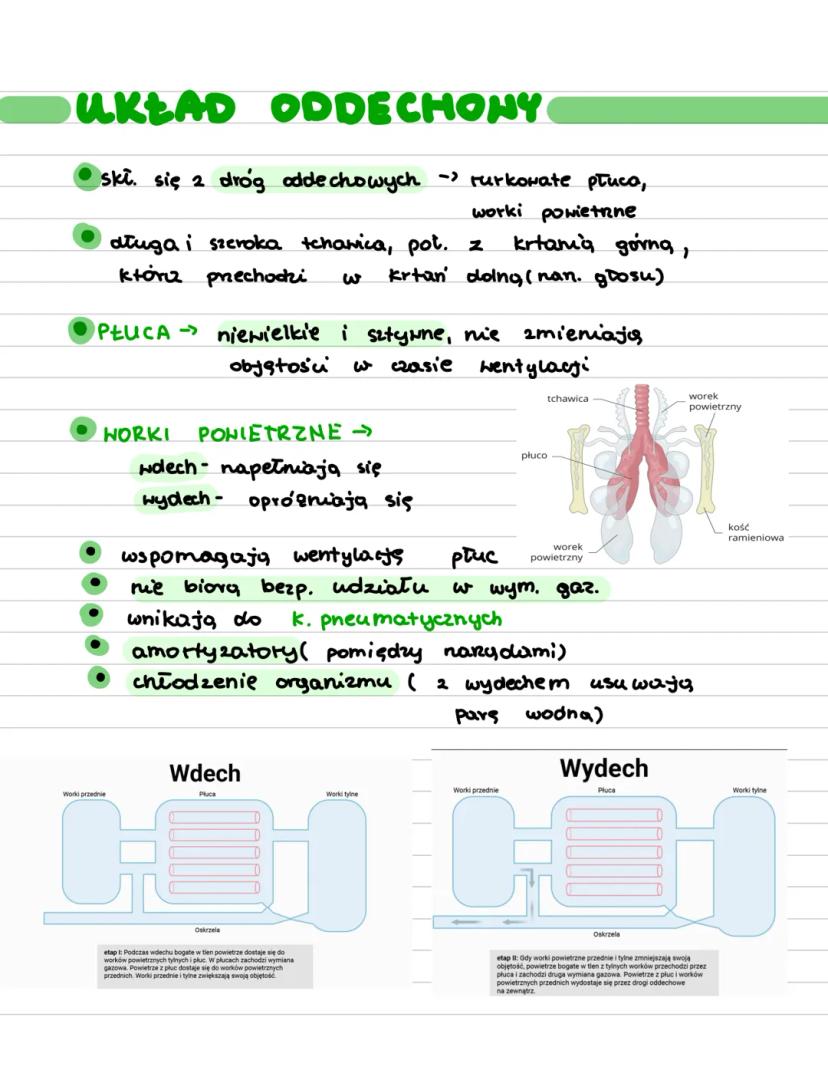 UKŁAD ODDECHOWY
skł. się z dróg oddechowych -> rurkowate płuca,
worki powietrzne
długa i szeroka tchawica, poł. z krtanią górną,
która przechodzi w krtań dolną (nan. głosu)
PŁUCA -> niewielkie i sztywne, nie zmieniają
objętości w czasie wentylacji
WORKI POWIETRZNE ->
wdech - napełniają się
wydech - opróżniają się
tchawica
worek
powietrzny
płuco
kość
ramieniowa
worek
powietrzny
wspomagają wentylację płuc
nie biorą bezp. udziału w wym. gaz.
wnikają do k. pneumatycznych
amortyzatory (pomiędzy narządami)
chłodzenie organizmu (z wydechem usuwają
parę wodną)
Wdech
Worki przednie Płuca Worki tylne
Oskrzela
etap I: Podczas wdechu bogate w tlen powietrze dostaje się do
worków powietrznych tylnych i płuc. W płucach zachodzi wymiana
gazowa. Powietrze z płuc dostaje się do worków powietrznych
przednich. Worki przednie i tylne zwiększają swoją objętość.
Wydech
Worki przednie Płuca Worki tylne
Oskrzela
etap II: Gdy worki powietrzne przednie i tylne zmniejszają swoją
objętość, powietrze bogate w tlen z tylnych worków przechodzi przez
płuca i zachodzi druga wymiana gazowa. Powietrze z płuc i worków
powietrznych przednich wydostaje się przez drogi oddechowe
na zewnątrz.